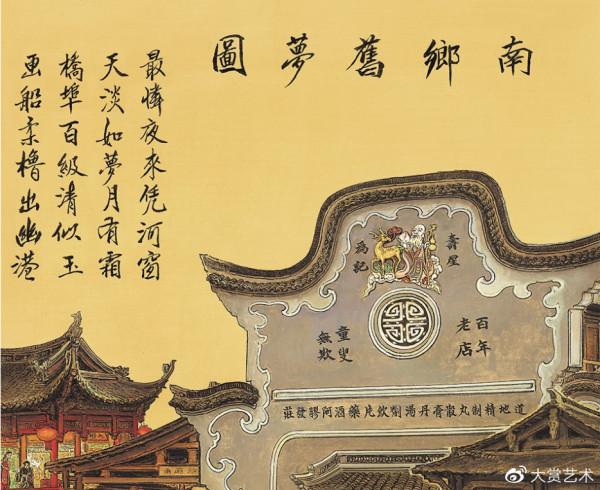 南鄉舊夢圖
最憐夜來凭河窗
天淡如夢月有霜
橋埠百級清似玉
画船柔櫓出幽港
壽星
為記
百年
老店
童叟
無欺
道地精制丸散膏丹湯劑飲片藥酒阿膠發莊
大赏艺术